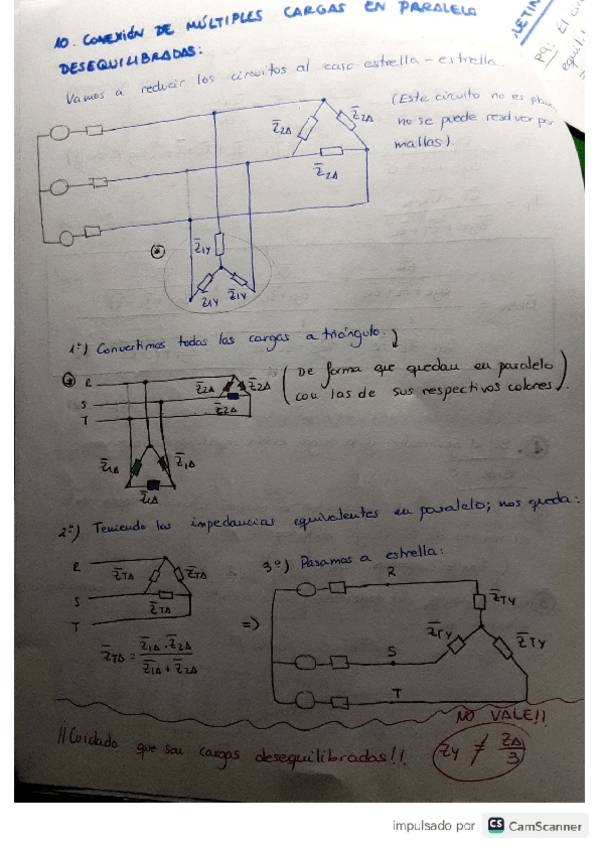 10. CONEXIÓN DE MÚLTIPLES CARGAS EN PARALELO
DESEQUILIBRADAS:
Vamos a reducir los circuitos al caso estrella-estrella.
(Este circuito no es
no se puede resolver por
mallas).
Z̄2Δ
Z̄2Δ
Z̄2Δ
Z̄1Y
Z̄1Y
Z̄1Y
1º) Convertimos todas las cargas a triángulo.
R
S
T
Z̄2Δ
Z̄2Δ
Z̄2Δ
(De forma que quedan en paralelo
con las de sus respectivos colores).
Z̄1Δ
Z̄1Δ
Z̄1Δ
2º) Teniendo las impedancias equivalentes en paralelo; nos queda:
R
S
T
Z̄TΔ
Z̄TΔ
Z̄TΔ
Z̄TΔ = Z̄1Δ · Z̄2Δ / Z̄1Δ + Z̄2Δ
=>
3º) Pasamos a estrella:
R
S
T
Z̄TY
Z̄TY
Z̄TY
NO VALE!!
¡¡Cuidado que son cargas desequilibradas!!
ZY ≠ ZΔ / 3
PQ: El
impulsado por CS CamScanner